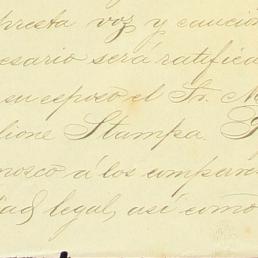 presta voz y caución
cesario será ratifica
su esposo el Sr. M
lione Stampa.
nosco á los compare
dad legal, así como